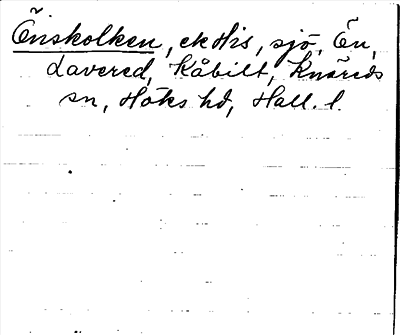 Enskolken, ek His, sjö, En,
Lavered, Kåbilt, Knäreds
sn, Höks hd, Hall. l.